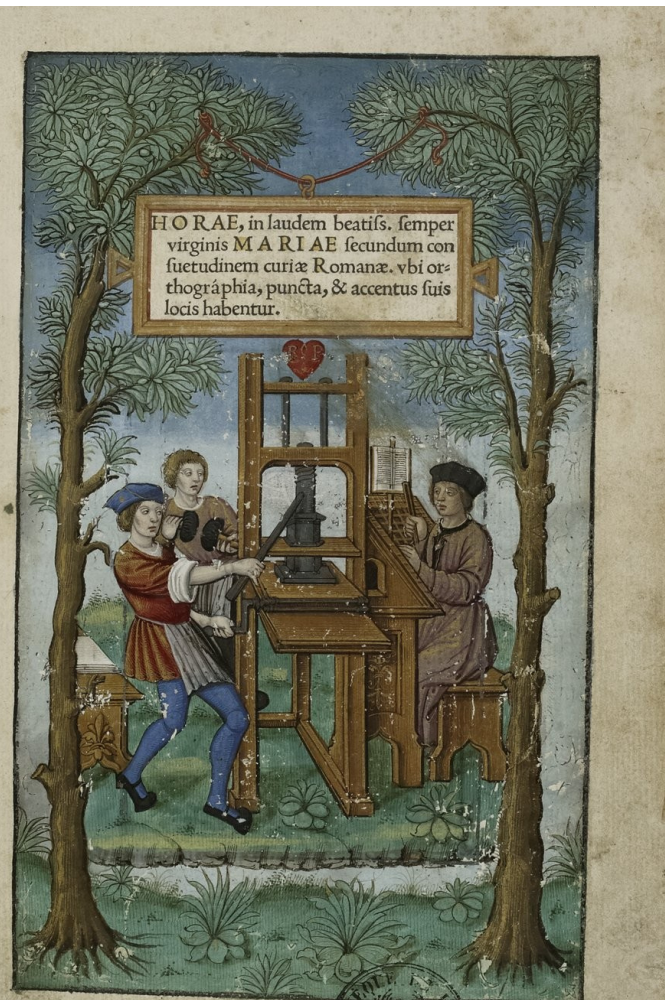 HORAE, in laudem beatiſs. ſemper
virginis MARIAE ſecundum con
ſuetudinem curiæ Romanæ. vbi or⸗
thográphia, puncta, & accentus ſuis
locis habentur.